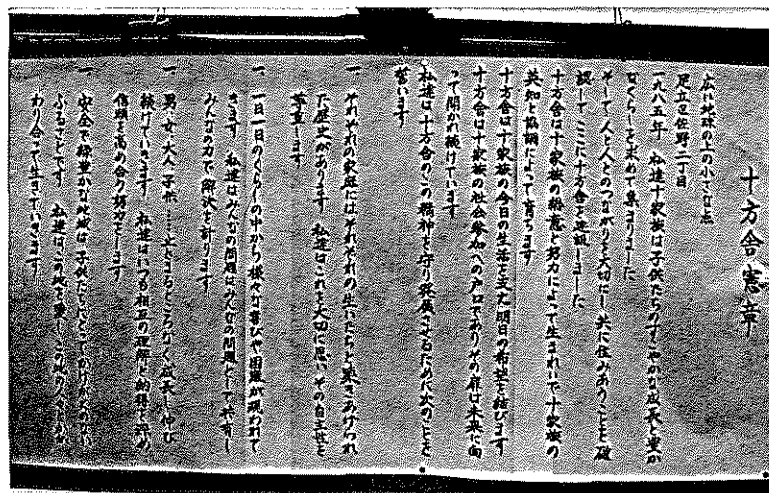 十方舎憲章
広い地球の上の小さな点
足立区佐野二丁目
一九八五年 私達十家族は子供たちのすこやかな成長と豊か
なくらしを求めて集まりました
そして人と人とのつながりを大切にし共に住みあうことを確
認してここに十方舎を建設しました
十方舎は十家族の熱意と努力によって生まれいで十家族の
英知と協調によって育ちます
十方舎は十家族の今日の生活を支え明日の希望を結びます
十方舎は十家族の社会参加への戸口でありその扉は未来に向
って開かれ続けています
私達は十方舎のこの精神を守り発展させるために次のことを
誓います
一、それぞれの家庭にはそれぞれの生いたちと築きあげられ
た歴史があります 私達はこれを大切に思いその自主性を
尊重します
一、一日一日のくらしの中から様々な喜びや困難が現われて
きます 私達はみんなの問題はみんなの問題として共有し
みんなの力で解決を計ります
一、男、女、大人、子供……止まるところなく成長し伸び
続けていきます 私達はいつも相互の理解と納得を深め
信頼を高め合う努力をします
一、安全で緑豊かな地域は子供たちにとってかけがえのない
ふるさとです 私達はこの地を愛しこの地の人々とかか
わり合って生きていきます